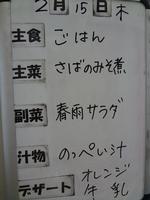 2月15日 木
主食 ごはん
主菜 さばのみそ煮
副菜 春雨サラダ
汁物 のっぺい汁
デザート オレンジ
牛乳